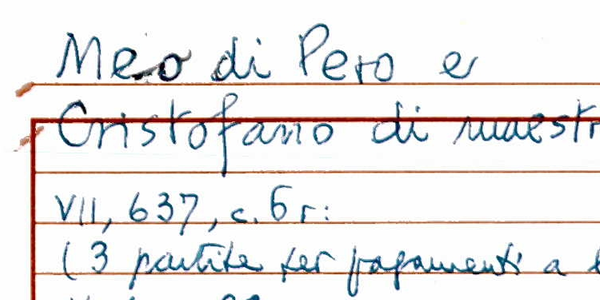 Meo di Pero e
Cristofano di maestr
VII, 637, c. 6 r:
(3 partite per pagamenti a